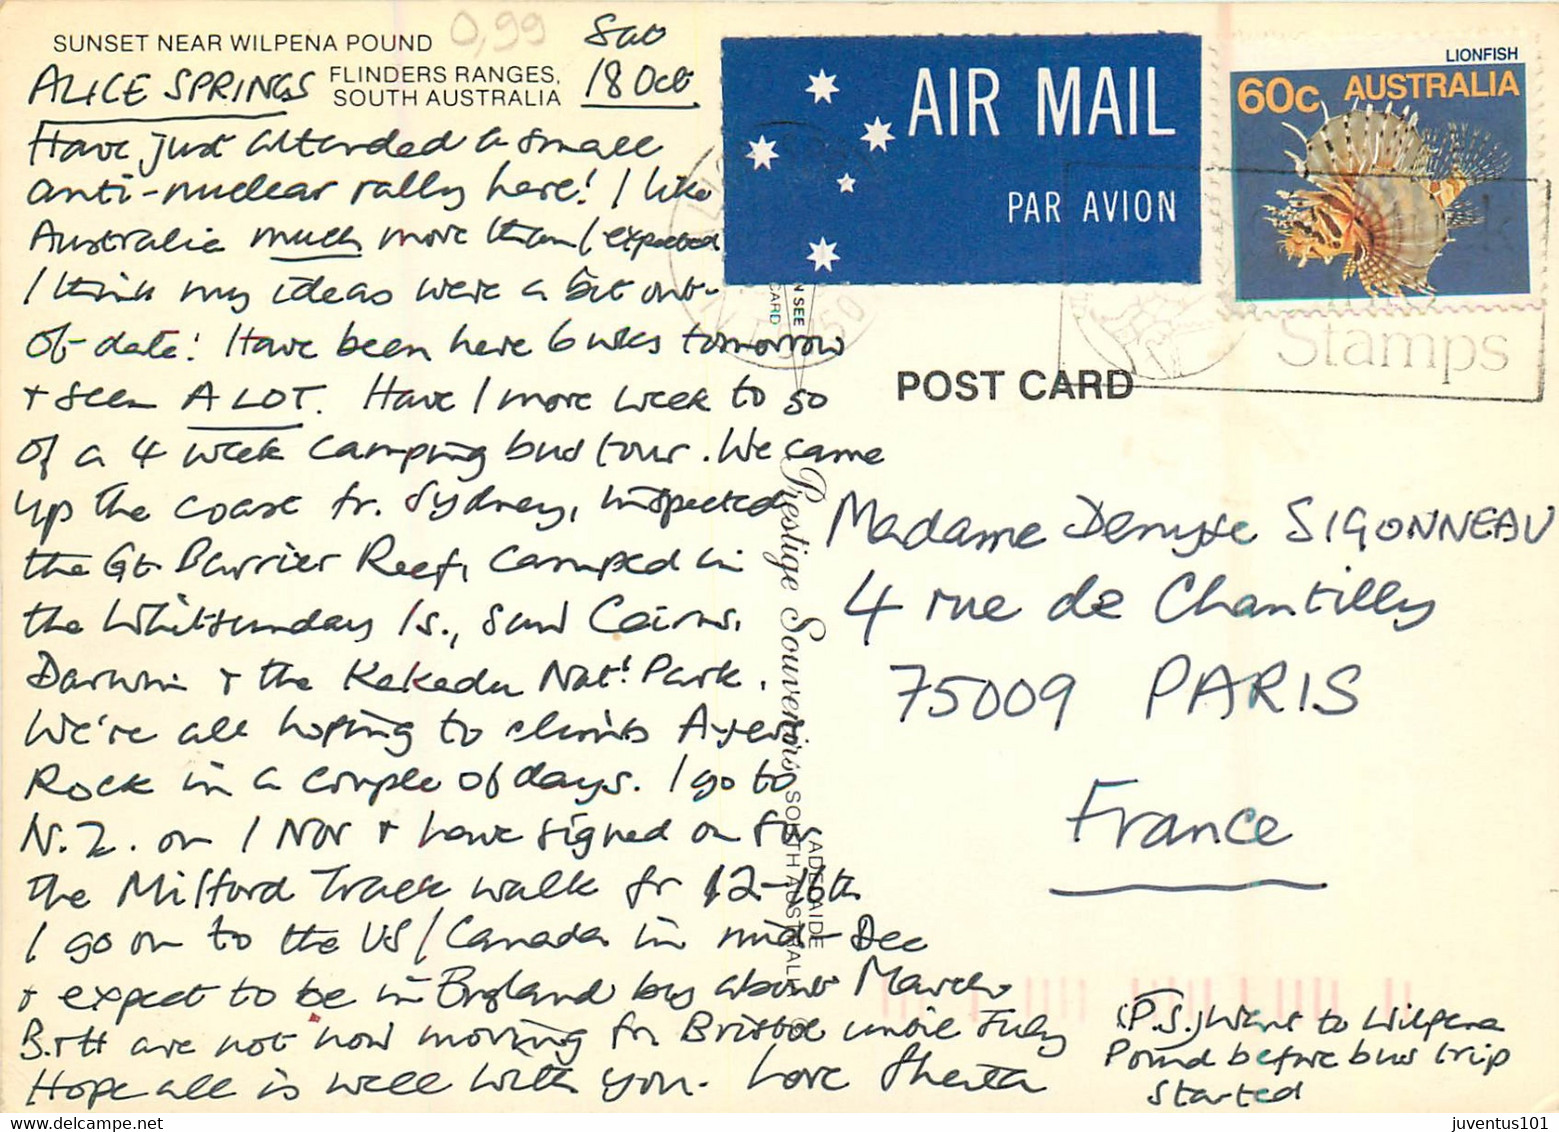 SUNSET NEAR WILPENA POUND
FLINDERS RANGES,
SOUTH AUSTRALIA
0,99
Sat
18 Oct
ALICE SPRINGS
Have just attended a small
anti-nuclear rally here! I like
Australia much more than I expected
I think my ideas were a bit out-
of-date! Have been here 6 wks tomorrow
+ seen A LOT. Have 1 more week to go
of a 4 week camping bus tour. We came
up the coast fr. Sydney, inspected
the Gt. Barrier Reef, camped in
the Whitsunday Is., saw Cairns,
Darwin + the Kakadu Nat! Park.
We're all hoping to climb Ayers
Rock in a couple of days. I go to
N.Z. on 1 Nov + have signed on for
the Milford Track walk fr 12-16th
I go on to the US/Canada in mid-Dec
+ expect to be in England by about March
B.+H are not now moving fr Bristol until July
Hope all is well with you. Love
AIR MAIL
PAR AVION
LIONFISH
60c AUSTRALIA
Stamps
N SEE
CARD
POST CARD
Prestige Souvenirs
ADELAIDE
SOUTH AUSTRALIA
Madame Denyse SIGONNEAU
4 rue de Chantilly
75009 PARIS
France
(P.S.) Went to Wilpena
Pound before bus trip
started
juventus101